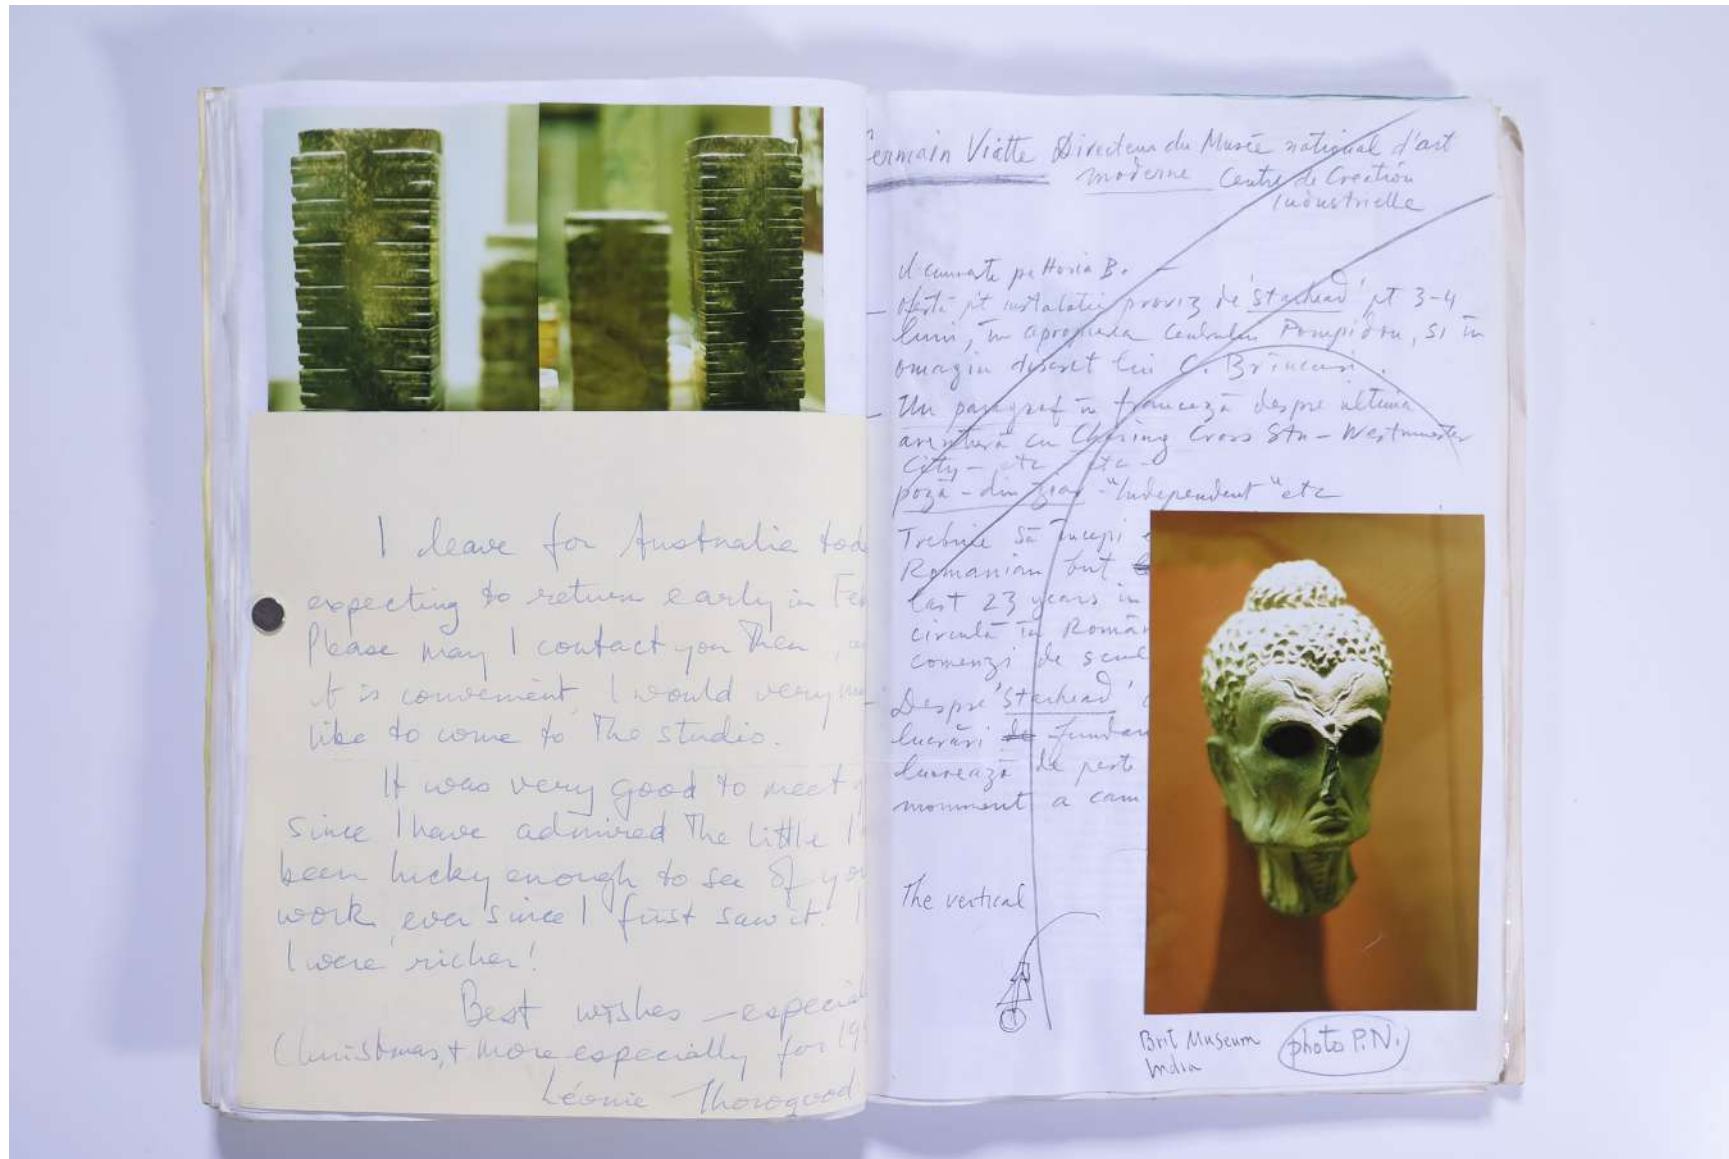 I leave for Australia tod
expecting to return early in Fe
Please may I contact you then,
it is convenient, I would very
like to come to the studio.
It was very good to meet
since I have admired the little I'
been lucky enough to see of yo
work, ever since I first saw it. I
I were richer!
Best wishes – especia
Christmas, + more especially for 19
Léonie Thorogood
ermain Viatte Directeur du Musée national d'art
moderne Centre de Création
industrielle
pe Horia B. –
– Ofertă pt instalatie proviz de 'Starhead' pt 3-4
luni, în apropierea Centrului Pompidou, si în
omagiu discret lui C. Brîncusi.
– Un paragraf în franceză despre ultima
aventură cu Charing Cross Stn – Westminster
City – etc etc –
poză – din ziar – "Independent" etc
Trebuie să începi
Romanian but
last 23 years in
circulă în Român
comenzi de scul
– Despre 'Starhead'
lucrări de fundam
lucrează de peste
monument a cam
The vertical
Brit Museum
India
photo P.N.